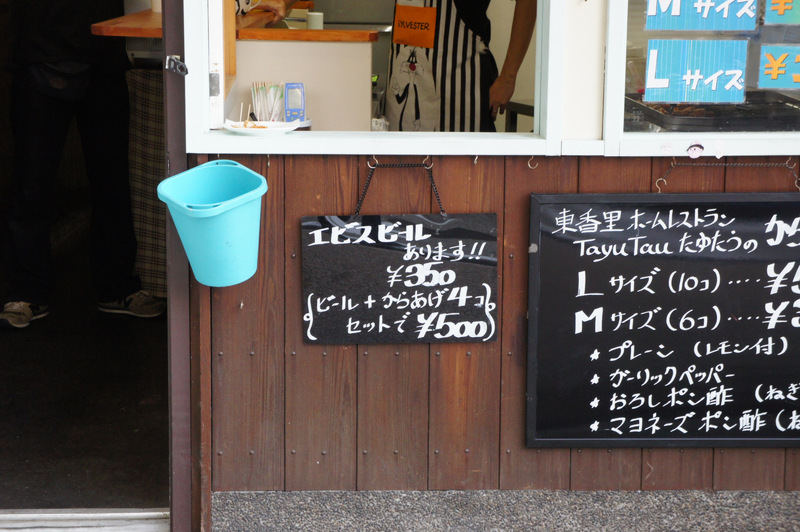 SYLVESTER
M サイズ
¥
L サイズ
¥
エビスビール
あります!!
¥350
(ビール + からあげ4コ
セットで ¥500)
東香里 ホームレストラン
TayuTau たゆたうの から
L サイズ (10コ)‥‥ ¥
M サイズ (6コ)‥‥ ¥
★ プレーン (レモン付)
★ ガーリックペッパー
★ おろしポン酢 (ねぎ
★ マヨネーズポン酢 (ね